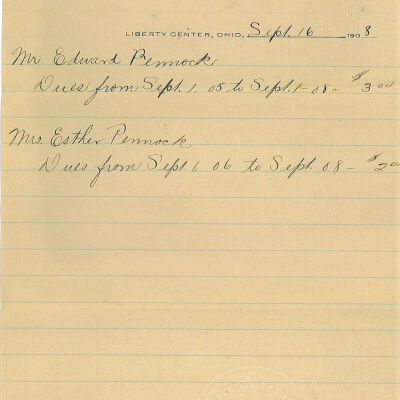 LIBERTY CENTER, OHIO, Sept. 16 1908
Mr. Edward Pennock
Dues from Sept. 1. 05 to Sept. 1 - 08 - $3.00
Mrs. Esther Pennock
Dues from Sept. 1. 06 to Sept. 08 - $2.00